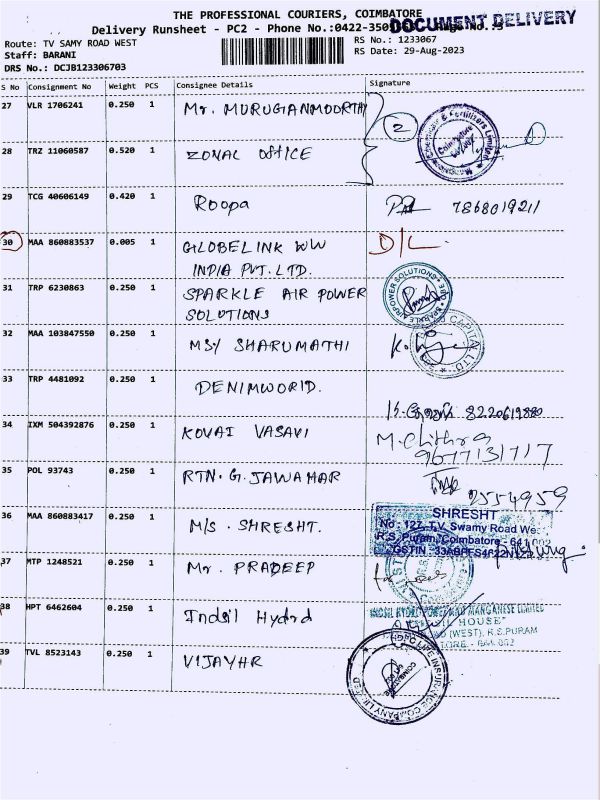 THE PROFESSIONAL COURIERS, COIMBATORE
DOCUMENT DELIVERY
Delivery Runsheet - PC2 - Phone No.:0422-350
Route: TV SAMY ROAD WEST
RS No.: 1233067
Staff: BARANI
RS Date: 29-Aug-2023
DRS No.: DCJB123306703
S No Consignment No Weight PCS Consignee Details Signature
27 VLR 1706241 0.250 1 Mr. MURUGANMOORTHY
2
28 TRZ 11060587 0.520 1 ZONAL OFFICE
29 TCG 40606149 0.420 1 Roopa 7868019211
30 MAA 860883537 0.005 1 GLOBELINK WW D/L
INDIA PVT. LTD.
31 TRP 6230863 0.250 1 SPARKLE AIR POWER
SOLUTIONS
32 MAA 103847550 0.250 1 MS/ SHARUMATHI
33 TRP 4481092 0.250 1 DENIMWORID.
8220619880
34 IXM 504392876 0.250 1 KOVAI VASAVI M. Chithra
9677131717
35 POL 93743 0.250 1 RTN. G. JAWAHAR
9554959
36 MAA 860883417 0.250 1 M/S. SHRESHT.
SHRESHT
No : 127, T.V. Swamy Road We
R.S. Puram, Coimbatore - 641 002
37 MTP 1248521 0.250 1 Mr. PRADEEP
38 HPT 6462604 0.250 1 Indsil Hydro
MANGANESE LIMITED
HOUSE"
(WEST), R.S.PURAM
39 TVL 8523143 0.250 1 VIJAYHR